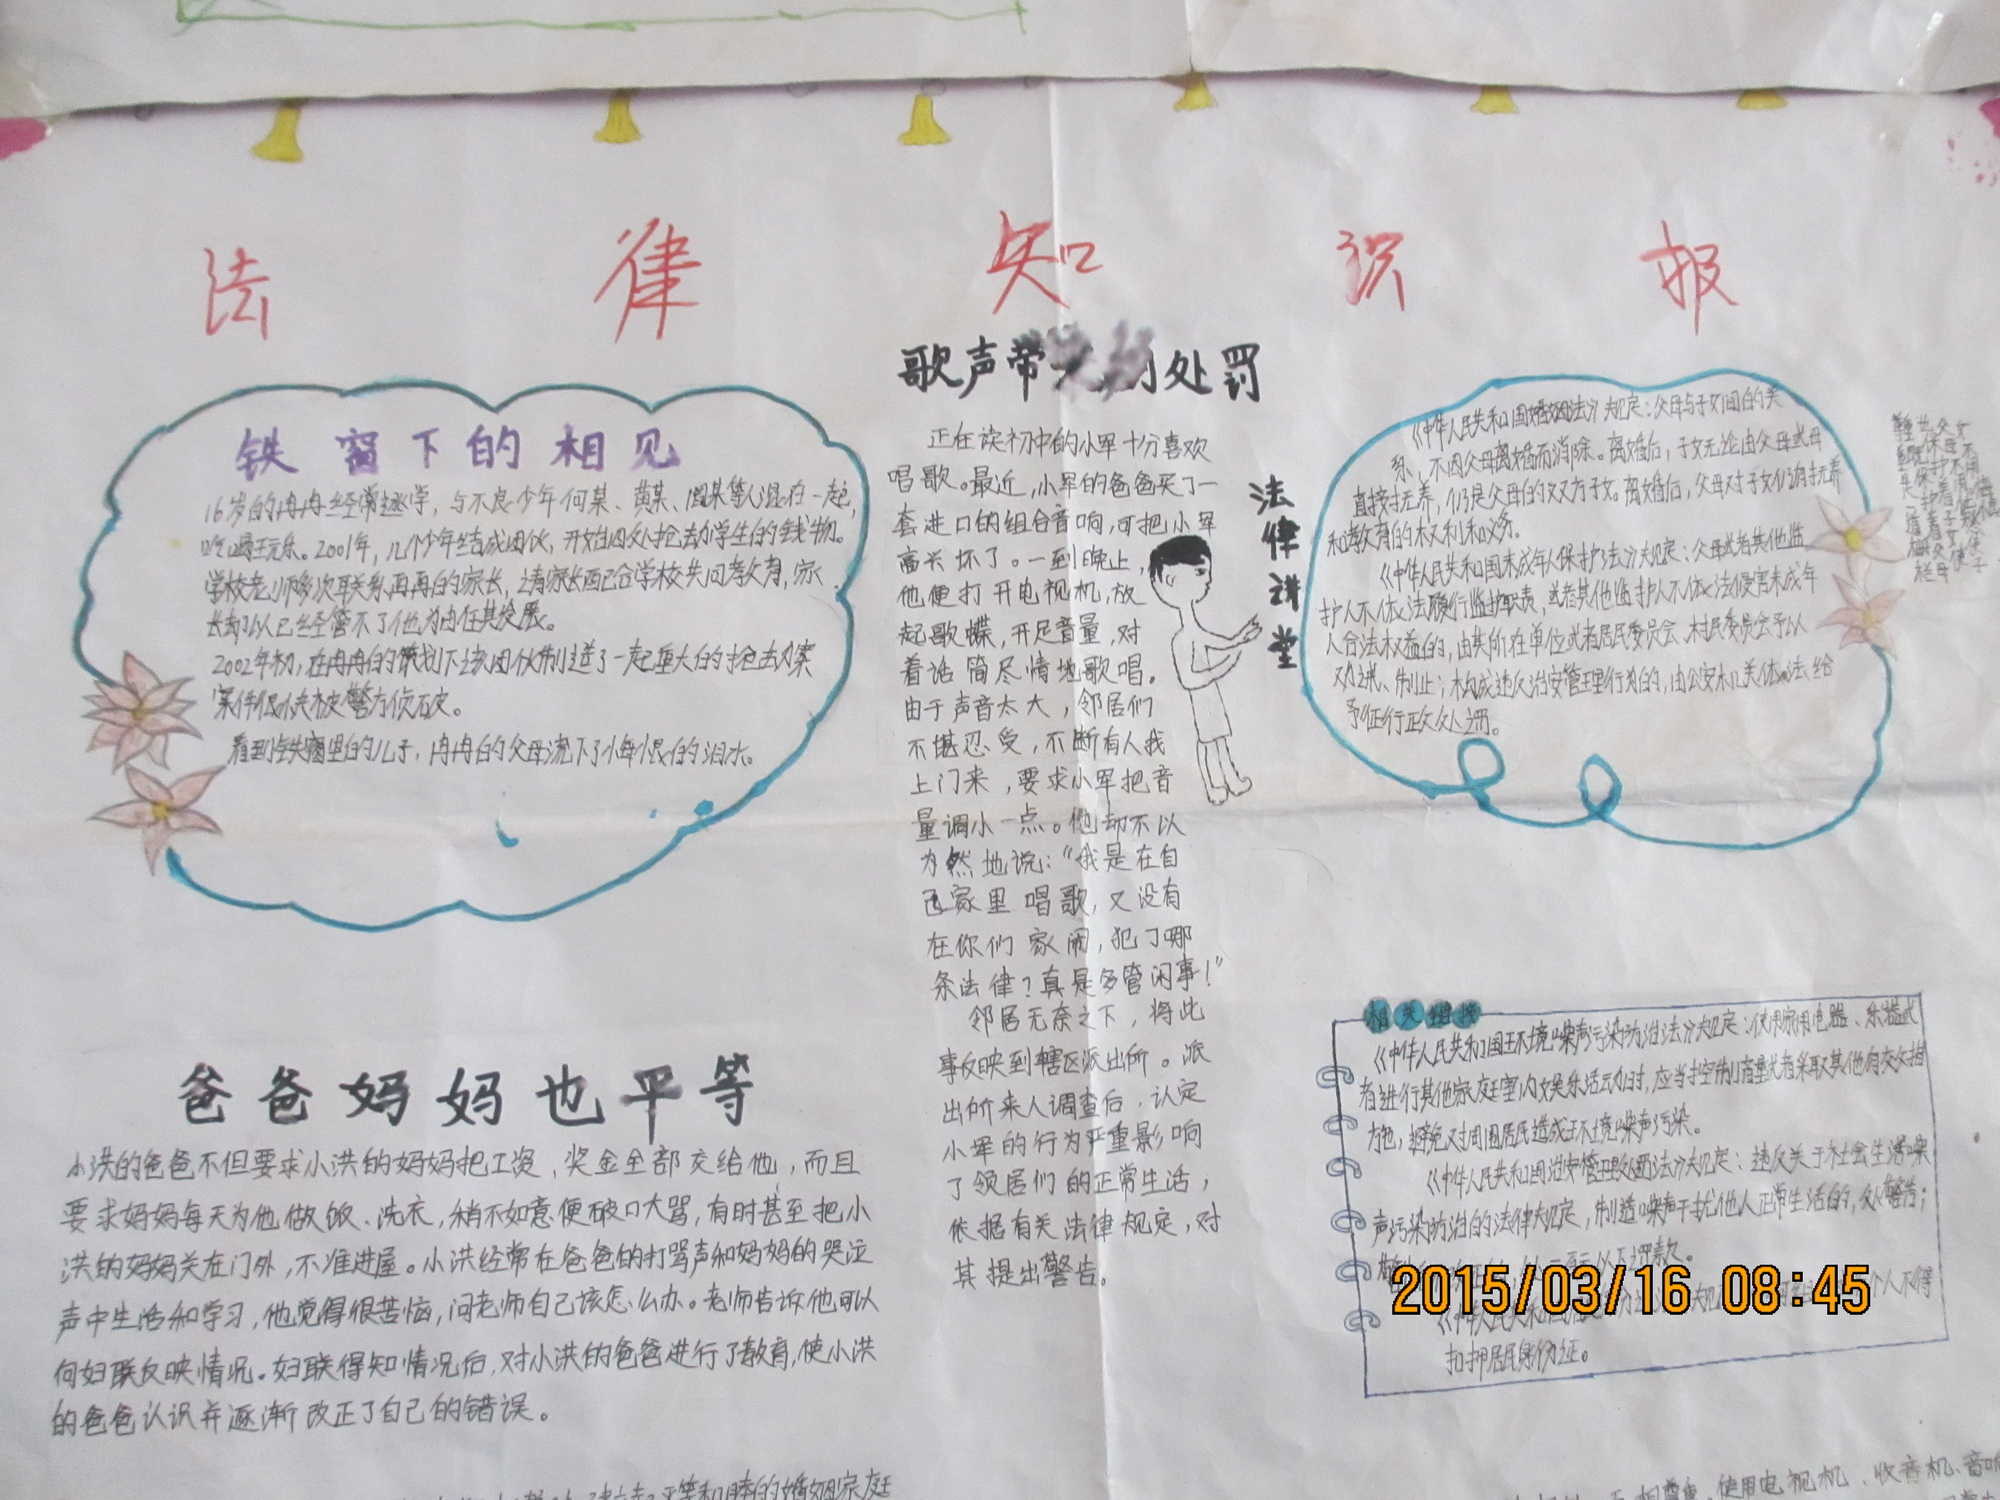 法律知识报
铁窗下的相见
16岁的冉冉经常逃学，与不良少年何某、黄某、周某等人混在一起，
吃喝玩乐。2001年，几个少年结成团伙，开始四处抢劫学生的钱物。
学校老师多次联系冉冉的家长，请家长配合学校共同教育，家
长却以已经管不了他为由任其发展。
2002年初，在冉冉的策划下该团伙制造了一起重大的抢劫案
案件很快被警方侦破。
看到铁窗里的儿子，冉冉的父母流下了悔恨的泪水。
爸爸妈妈也平等
小洪的爸爸不但要求小洪的妈妈把工资，奖金全部交给他，而且
要求妈妈每天为他做饭、洗衣，稍不如意便破口大骂，有时甚至把小
洪的妈妈关在门外，不准进屋。小洪经常在爸爸的打骂声和妈妈的哭泣
声中生活和学习，他觉得很苦恼，问老师自己该怎么办。老师告诉他可以
向妇联反映情况。妇联得知情况后，对小洪的爸爸进行了教育，使小洪
的爸爸认识并逐渐改正了自己的错误。
平等和睦的婚姻家庭
歌声带 的处罚
正在读初中的小军十分喜欢
唱歌。最近，小军的爸爸买了一
套进口的组合音响，可把小军
高兴坏了。一到晚上，
他便打开电视机，放
起歌碟，开足音量，对
着话筒尽情地歌唱。
由于声音太大，邻居们
不堪忍受，不断有人找
上门来，要求小军把音
量调小一点。他却不以
为然地说：“我是在自
己家里唱歌，又没有
在你们家闹，犯了哪
条法律？真是多管闲事！”
邻居无奈之下，将此
事反映到辖区派出所。派
出所来人调查后，认定
小军的行为严重影响
了领居们的正常生活，
依据有关法律规定，对
其提出警告。
法律讲堂
《中华人民共和国婚姻法》规定：父母与子女间的关
系，不因父母离婚而消除。离婚后，子女无论由父母或母
直接抚养，仍是父母的双方子女。离婚后，父母对子女仍有抚养
和教育的权利和义务。
《中华人民共和国未成年人保护法》规定：父母或者其他监
护人不依法履行监护职责，或者其他监护人不依法侵害未成年
人合法权益的，由其所在单位或者居民委员会、村民委员会予以
劝诫、制止；构成违反治安管理行为的，由公安机关依法给
予行政处罚。
相关链接
《中华人民共和国环境噪声污染防治法》规定：使用家用电器、乐器或
者进行其他家庭室内娱乐活动时，应当控制音量或者采取其他有效措
施，避免对周围居民造成环境噪声污染。
《中华人民共和国治安管理处罚法》规定：违反关于社会生活噪
声污染防治的法律规定，制造噪声干扰他人正常生活的，处警告；
以下罚款。
《中华人民共和国 个人不得
扣押居民身份证。
使用电视机、收音机、音响
2015/03/16 08:45